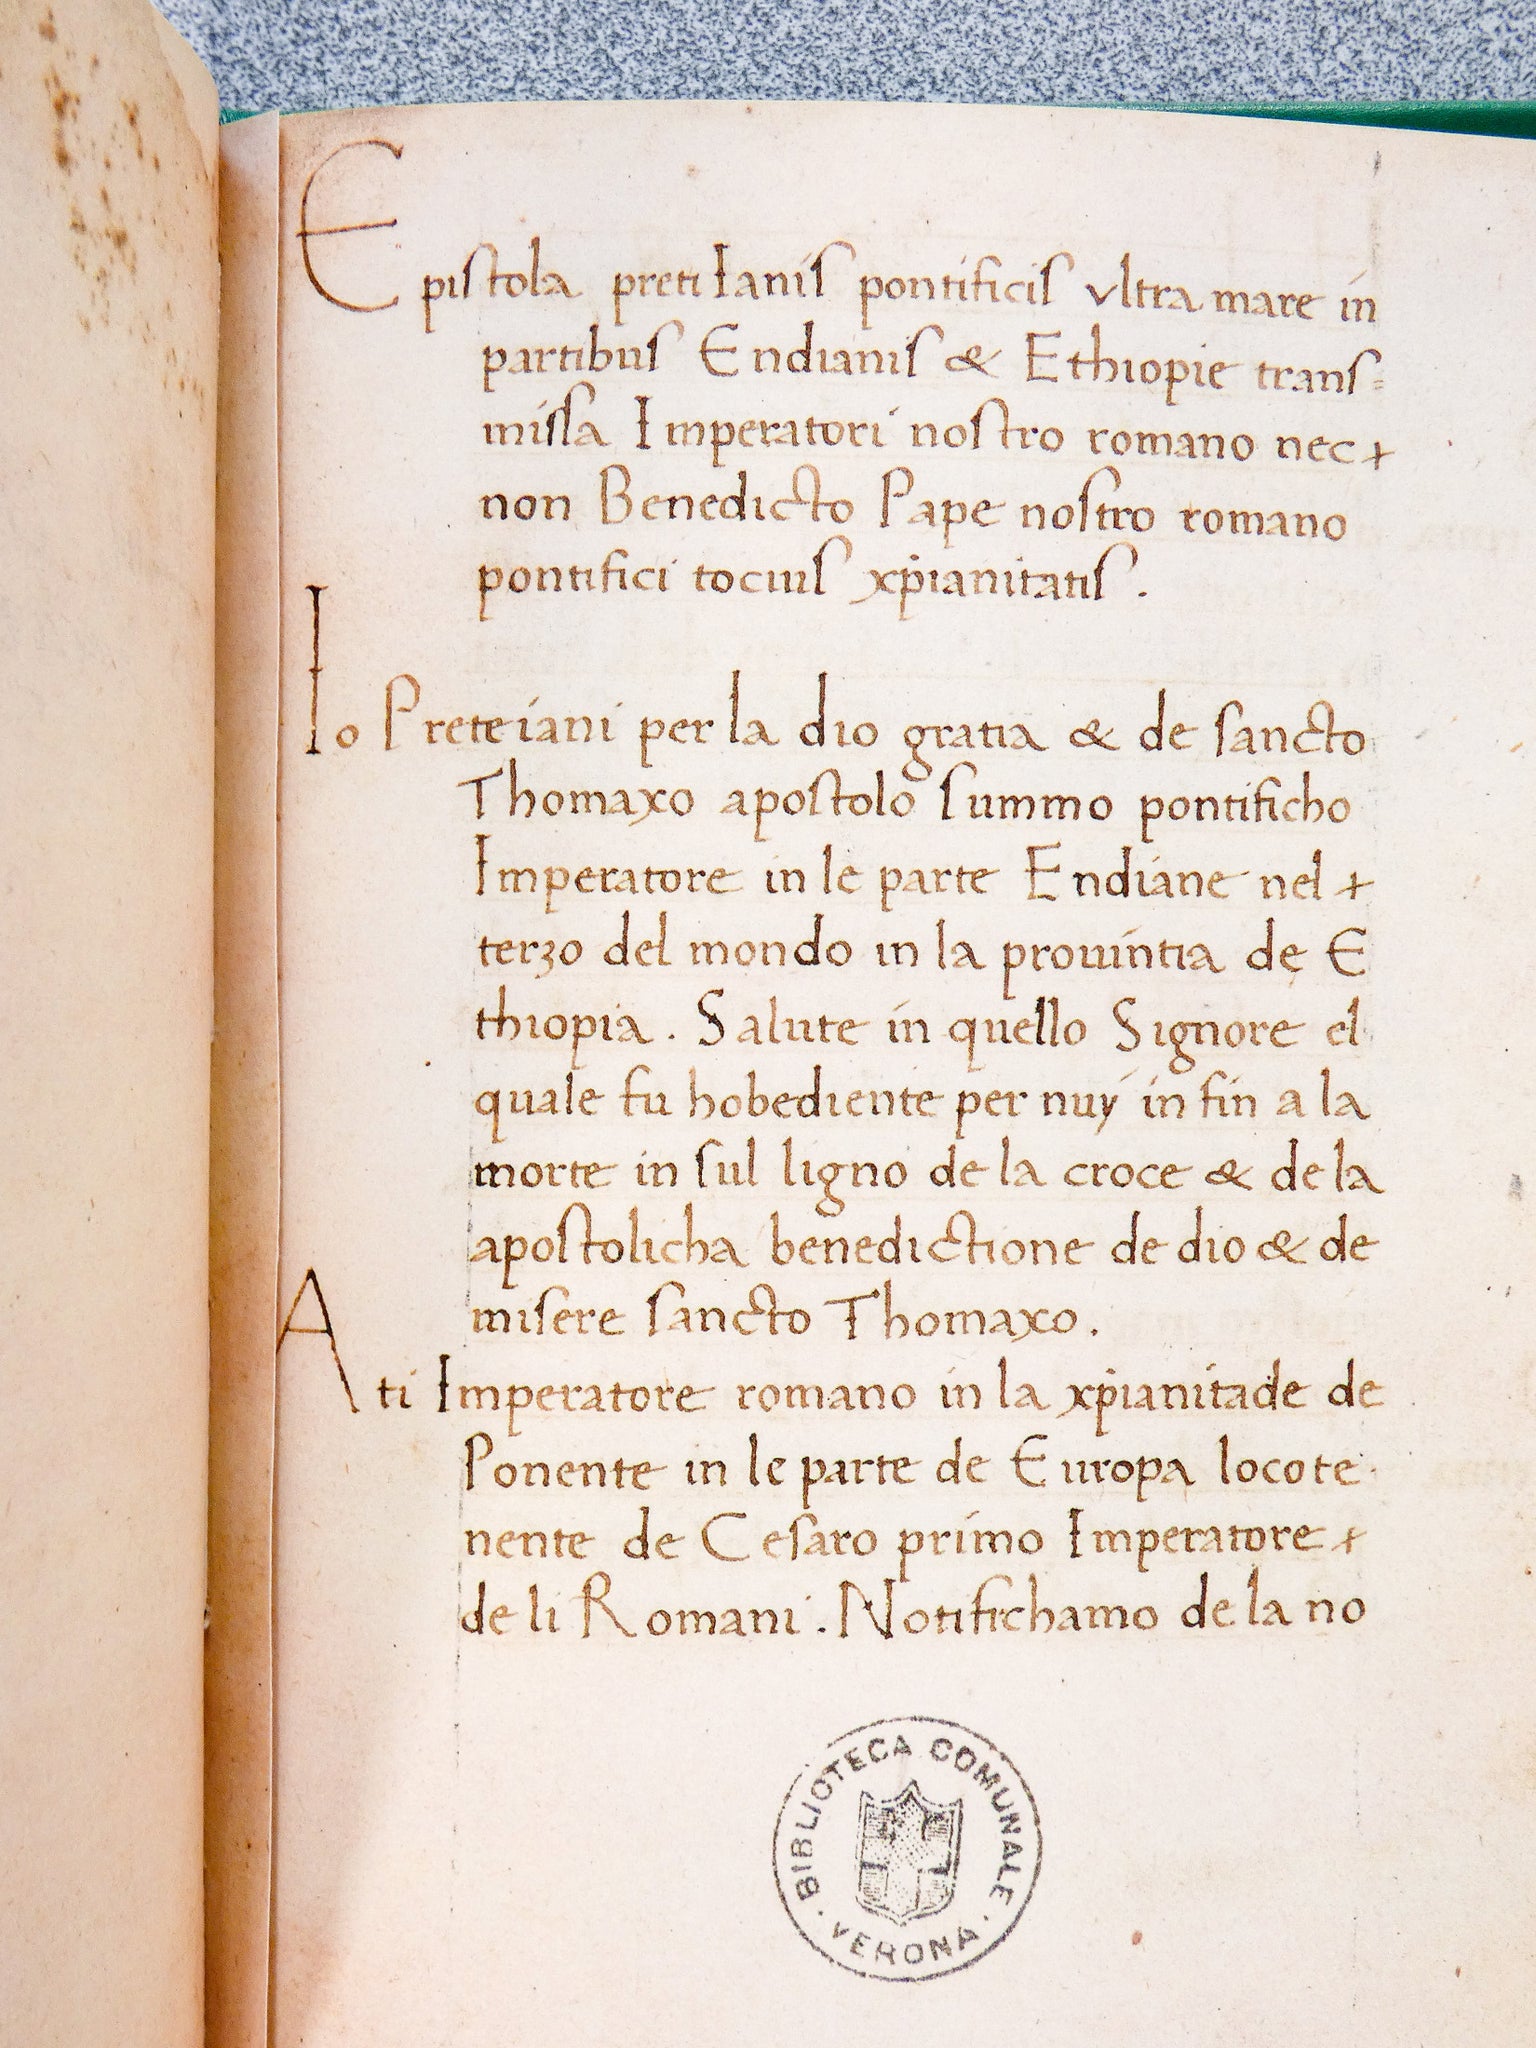 Epistola preti Ianis pontificis vltra mare in
partibus Endianis & Ethiopie trans=
missa Imperatori nostro romano nec+
non Benedicto Pape nostro romano
pontifici tocius xp̄ianitatis.
Io Prete iani per la dio gratia & de sancto
Thomaxo apostolo summo pontificho
Imperatore in le parte Endiane nel+
terzo del mondo in la prouintia de E
thiopia. Salute in quello Signore el
quale fu hobediente per nuy in fin a la
morte in sul ligno de la croce & de la
apostolicha benedictione de dio & de
misere sancto Thomaxo.
A ti Imperatore romano in la xp̄ianitade de
Ponente in le parte de Europa locote
nente de Cesaro primo Imperatore+
de li Romani. Notifichamo de la no
BIBLIOTECA COMUNALE
· VERONA ·